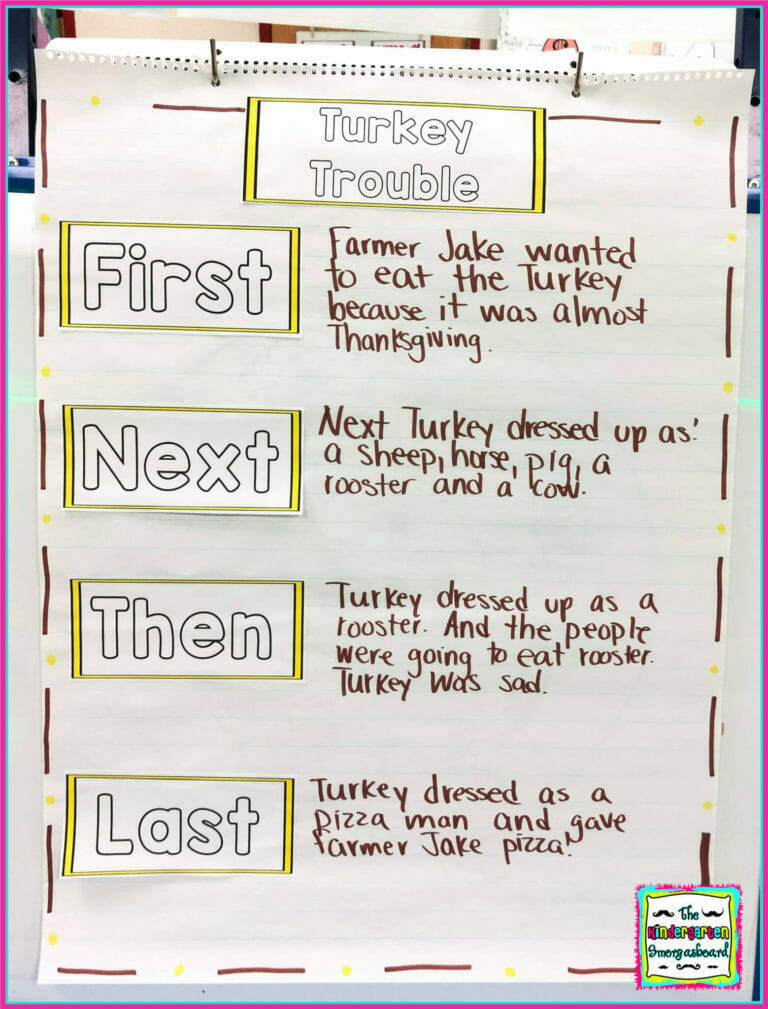 Turkey
Trouble
First
Farmer Jake wanted
to eat the Turkey
because it was almost
Thanksgiving.
Next
Next Turkey dressed up as:
a sheep, horse, pig, a
rooster and a cow.
Then
Turkey dressed up as a
rooster. And the people
were going to eat rooster.
Turkey was sad.
Last
Turkey dressed as a
pizza man and gave
farmer Jake pizza!
The
Kindergarten
Smorgasboard